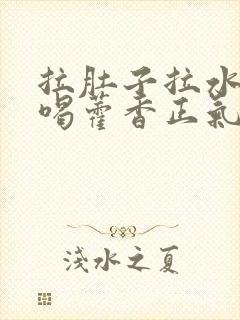 拉肚子拉水
喝藿香正氣
淺水之夏